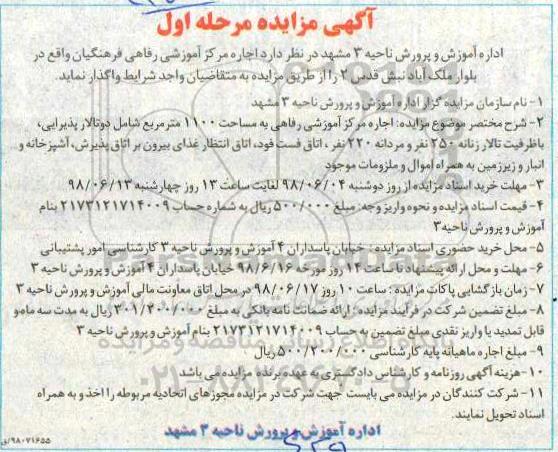 آگهی مزایده مرحله اول
اداره آموزش و پرورش ناحیه ۳ مشهد در نظر دارد اجاره مرکز آموزشی رفاهی فرهنگیان واقع در
بلوار ملک آباد نبش قدس ۲ را از طریق مزایده به متقاضیان واجد شرایط واگذار نماید.
۱- نام سازمان مزایده گزار اداره آموزش و پرورش ناحیه ۳ مشهد
۲- شرح مختصر موضوع مزایده: اجاره مرکز آموزشی رفاهی به مساحت ۱۱۰۰ متر مربع شامل دوتالار پذیرایی،
باظرفیت تالار زنانه ۲۵۰ نفر و مردانه ۲۲۰ نفر ، اتاق فست فود، اتاق انتظار غذای بیرون بر اتاق پذیرش، آشپزخانه و
انبار و زیرزمین به همراه اموال و ملزومات موجود
۳- مهلت خرید اسناد مزایده از روز دوشنبه ۹۸/۰۶/۰۴ لغایت ساعت ۱۳ روز چهارشنبه ۹۸/۰۶/۱۳
۴- قیمت اسناد مزایده و نحوه واریز وجه: مبلغ ۵۰۰/۰۰۰ ریال به شماره حساب ۲۱۷۳۱۲۱۷۱۴۰۰۹ بنام
آموزش و پرورش ناحیه۳
۵- محل خرید حضوری اسناد مزایده : خیابان پاسداران ۴ آموزش و پرورش ناحیه ۳ کارشناسی امور پشتیبانی
۶- مهلت و محل ارائه پیشنهاد تا ساعت ۱۴ روز مورخه ۹۸/۶/۱۶ خیابان پاسداران ۴ آموزش و پرورش ناحیه ۳
۷- زمان بازگشایی پاکات مزایده : ساعت ۱۰ روز ۹۸/۰۶/۱۷ در محل اتاق معاونت مالی آموزش و پرورش ناحیه ۳
۸- مبلغ تضمین شرکت در فرآیند مزایده : ارائه ضمانت نامه بانکی به مبلغ ۳۰۱/۲۰۰/۰۰۰ ریال به مدت سه ماه و
قابل تمدید یا واریز نقدی مبلغ تضمین به حساب ۲۱۷۳۱۲۱۷۱۴۰۰۹ بنام آموزش و پرورش ناحیه ۳
۹- مبلغ اجاره ماهیانه پایه کارشناسی ۵۰۰/۲۰۰/۰۰۰ ریال
۱۰- هزینه آگهی روزنامه و کارشناس دادگستری به عهده برنده مزایده می باشد
۱۱- شرکت کنندگان در مزایده می بایست جهت شرکت در مزایده مجوزهای اتحادیه مربوطه را اخذ و به همراه
اسناد تحویل نمایند.
اداره آموزش و پرورش ناحیه ۳ مشهد
۹۸۰۷۱۶۵۵/ق
ParsNamadData
پایگاه اطلاع رسانی مناقصه و مزایده
۰۲۱-۸۸۳۴۹۶۷۰-۵